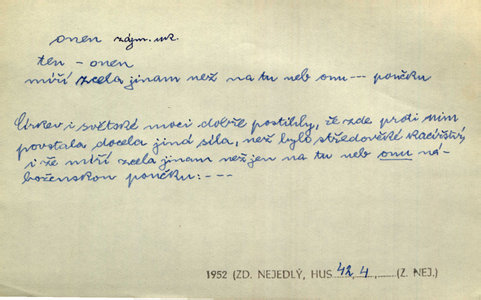 onen zájm. uk.
ten - onen
míří zcela jinam než na tu neb onu --- poučku
Církev i světské moci dobře postihly, že zde proti nim
povstala docela jiná síla, než bylo středověké kacířství,
i že míří zcela jinam než jen na tu neb onu ná-
boženskou poučku: ---
1952 (ZD. NEJEDLÝ, HUS 42,4, (Z. NEJ.)